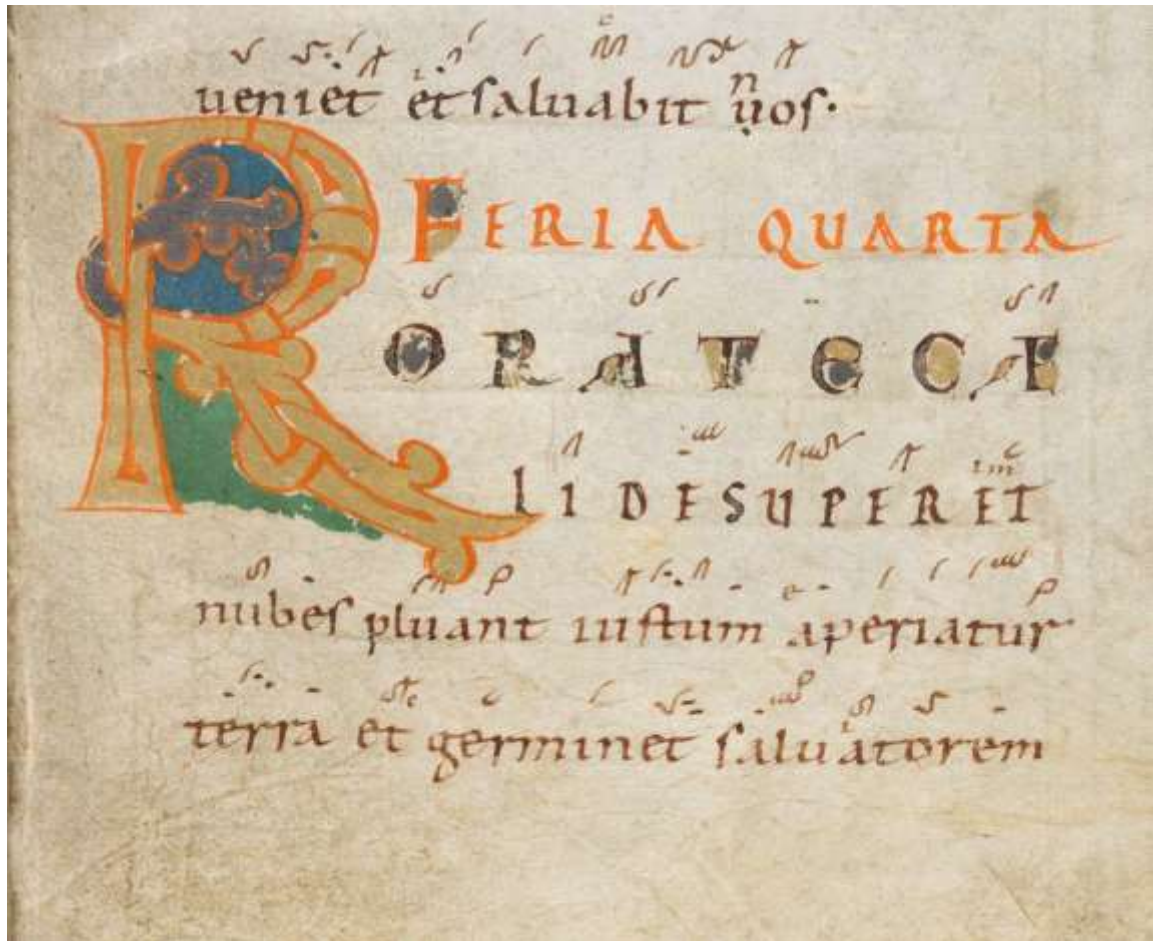 ueniet et saluabit uos·
FERIA QUARTA
RORATE CAE
LI DESUPER ET
nubes pluant iustum aperiatur
terra et germinet saluatorem